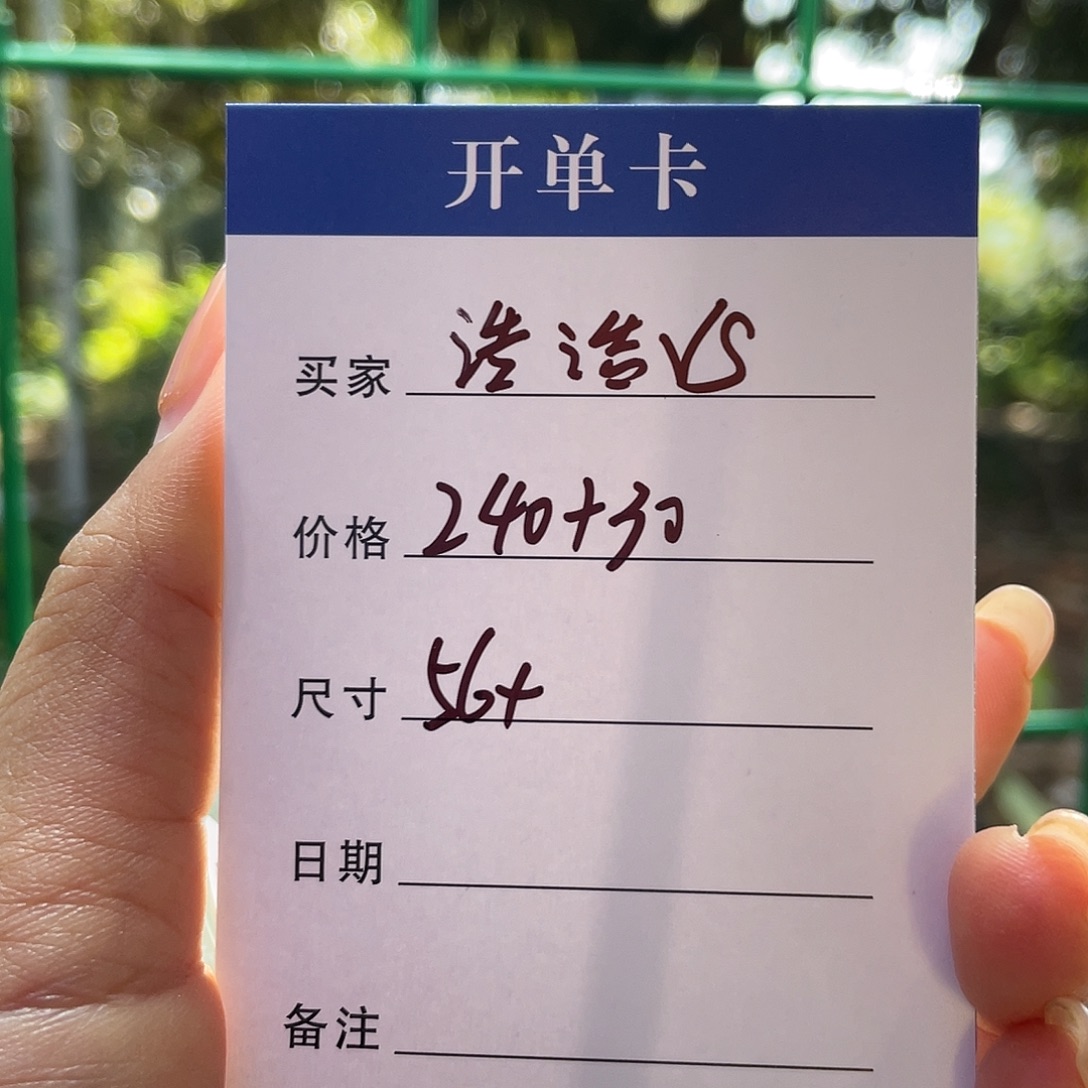 开单卡
买家 浩浩VS
价格 240+30
尺寸 56+
日期
备注